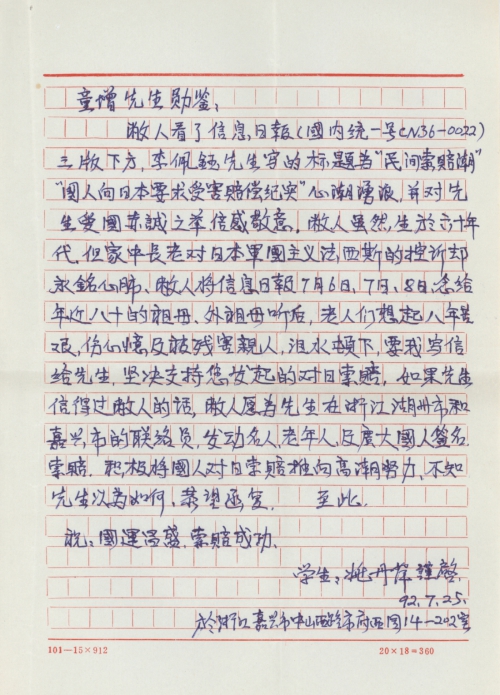 童增先生勋鉴：
敝人看了信息日報（國内统一号CN36-0022）
三版下方，李佩钰先生写的标题为“民间索赔潮”
“國人向日本要求受害赔偿纪实”心潮湧浪，并对先
生爱國赤誠之举倍感敬意。敝人虽然，生於六十年
代，但家中長老对日本軍國主义法西斯的控诉却
永銘心肺、敝人将信息日報7月6日、7日、8日念给
年近八十的祖母、外祖母听后，老人们想起八年
艰，伤心憶及被残害親人，泪水顿下，要我写信
给先生，坚决支持您发起的对日索赔，如果先生
信得过敝人的话，敝人愿为先生在浙江湖州市和
嘉兴市的联络员，发动名人、老年人、及廣大國人签名
索赔．积极将國人对日索赔推向高潮努力、不知
先生以为如何、恭望函复．至此．
祝：國運昌盛．索赔成功．
学生：姚丹萍 謹啓．
92.7.25.
於浙江嘉兴市中山西路市府西园14-202室
101—15×912
20×18=360